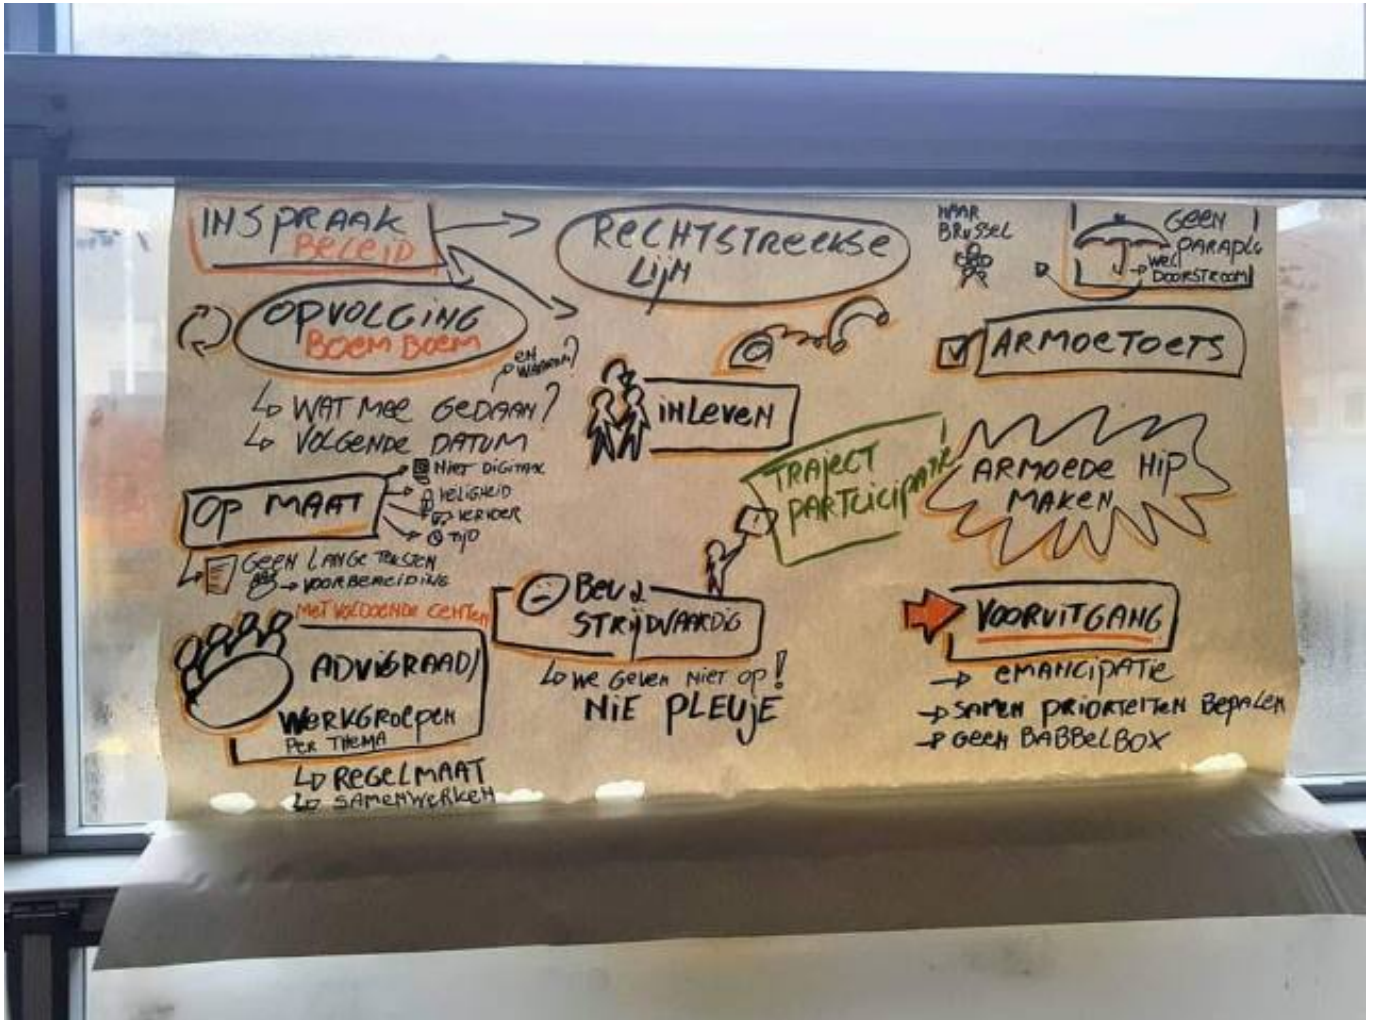 INSPRAAK
BELEID
RECHTSTREEKSE
LIJN
NAAR
BRUSSEL
GEEN
PARAPLU
WEL
DOORSTROOM
OPVOLGING
BOEM BOEM
EN
WAAROM?
WAT MEE GEDAAN?
VOLGENDE DATUM
INLEVEN
ARMOETOETS
TRAJECT
PARTCICIPATIE
ARMOEDE HIP
MAKEN
OP MAAT
NIET DIGITAAL
VEILIGHEID
VERVOER
TIJD
GEEN LANGE TEKSTEN
VOORBEREIDING
MET VOLDOENDE CENTEN
ADVIGRAAD/
WERKGROEPEN
PER THEMA
REGELMAAT
SAMENWERKEN
STRIJDVAARDIG
WE GEVEN NIET OP!
NIE PLEUJE
VOORUITGANG
EMANCIPATIE
SAMEN PRIORTEITEN BEPALEN
GEEN BABBELBOX